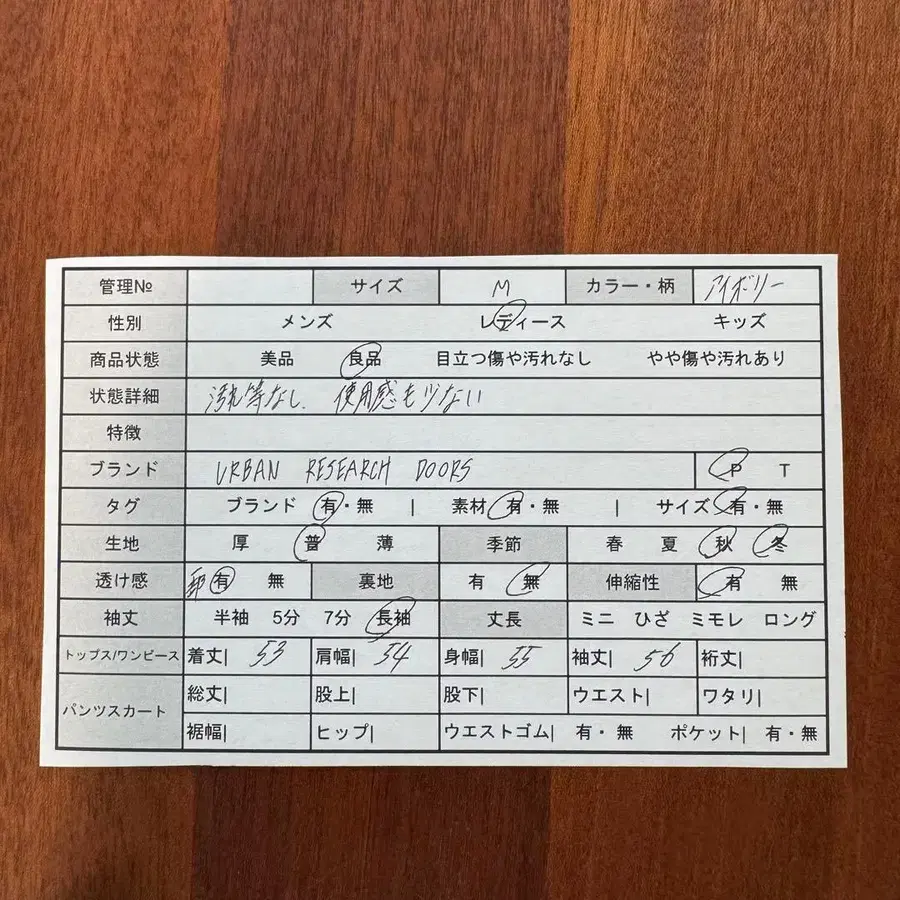 管理№ サイズ M カラー・柄 アイボリー
性別 メンズ レディース キッズ
商品状態 美品 良品 目立つ傷や汚れなし やや傷や汚れあり
状態詳細 汚れ等なし、使用感も少ない
特徴
ブランド URBAN RESEARCH DOORS P T
タグ ブランド 有・無 | 素材 有・無 | サイズ 有・無
生地 厚 普 薄 季節 春 夏 秋 冬
透け感 有 無 裏地 有 無 伸縮性 有 無
袖丈 半袖 5分 7分 長袖 丈長 ミニ ひざ ミモレ ロング
トップス/ワンピース 着丈| 53 肩幅| 54 身幅| 55 袖丈| 56 裄丈|
パンツスカート 総丈| 股上| 股下| ウエスト| ワタリ|
裾幅| ヒップ| ウエストゴム| 有・無 ポケット| 有・無